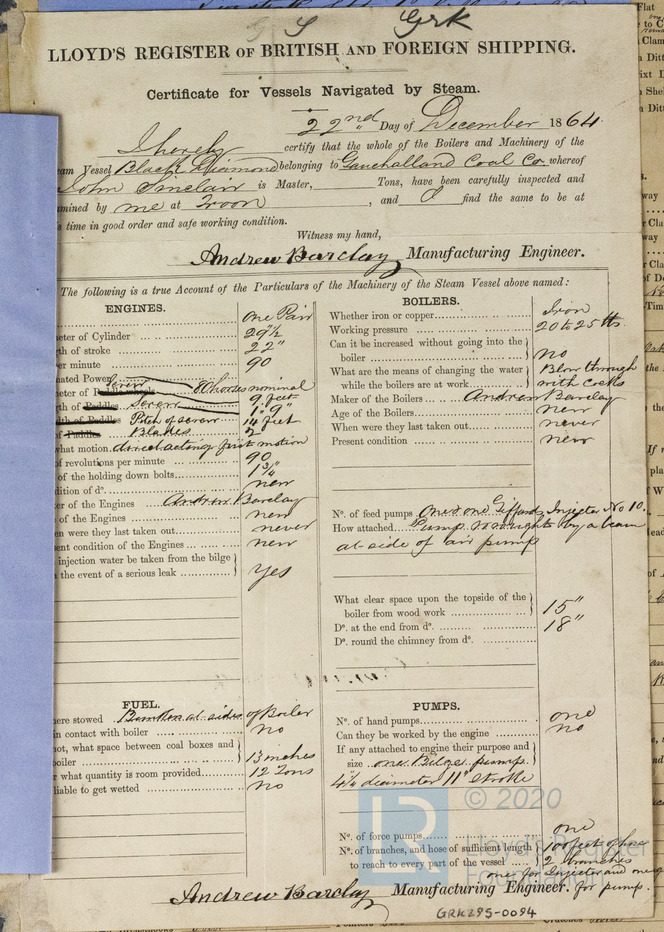 Grk
LLOYD'S REGISTER OF BRITISH AND FOREIGN SHIPPING.
Certificate for Vessels Navigated by Steam.
22nd Day of December 1864
I hereby certify that the whole of the Boilers and Machinery of the
eam Vessel Black Diamond belonging to Gauchalland Coal Co. whereof
John Sinclair is Master, Tons, have been carefully inspected and
amined by me at Troon, and I find the same to be at
s time in good order and safe working condition.
Witness my hand,
Andrew Barclay Manufacturing Engineer.
The following is a true Account of the Particulars of the Machinery of the Steam Vessel above named:
ENGINES.
One Pair
eter of Cylinder 29½
th of stroke 22"
er minute 90
nated Power 80 horses nominal
eter of Screw 9 feet
gth of Paddles Screw 1"9"
dth of Paddles Pitch of screw 14 feet
of Paddles Blades 2
what motion direct acting first motion
of revolutions per minute 90
of the holding down bolts 1¾"
dition of do. new
er of the Engines Andrew Barclay
of the Engines new
en were they last taken out never
sent condition of the Engines new
injection water be taken from the bilge
the event of a serious leak Yes
FUEL.
here stowed Bunkers at sides of Boiler
in contact with boiler no
not, what space between coal boxes and
boiler 13 inches
r what quantity is room provided 12 Tons
liable to get wetted no
BOILERS.
Whether iron or copper Iron
Working pressure 20 to 25 lbs.
Can it be increased without going into the
boiler no
What are the means of changing the water
while the boilers are at work Blow through with cocks
Maker of the Boilers Andrew Barclay
Age of the Boilers new
When were they last taken out never
Present condition new
No. of feed pumps one & one Giffards Injector No 10.
How attached Pump wrought by a beam
at side of air pump
What clear space upon the topside of the
boiler from wood work 15"
Do. at the end from do. 18"
Do. round the chimney from do.
PUMPS.
No. of hand pumps one
Can they be worked by the engine no
If any attached to engine their purpose and
size one Bilge pump
4¼ diameter 11" stroke
No. of force pumps one
No. of branches, and hose of sufficient length
to reach to every part of the vessel 100 feet of hose
2 branches
one for Injector and one
for pump.
Andrew Barclay Manufacturing Engineer.
GRK295-0094
© 2020
LR
Lloyd's Register
Foundation